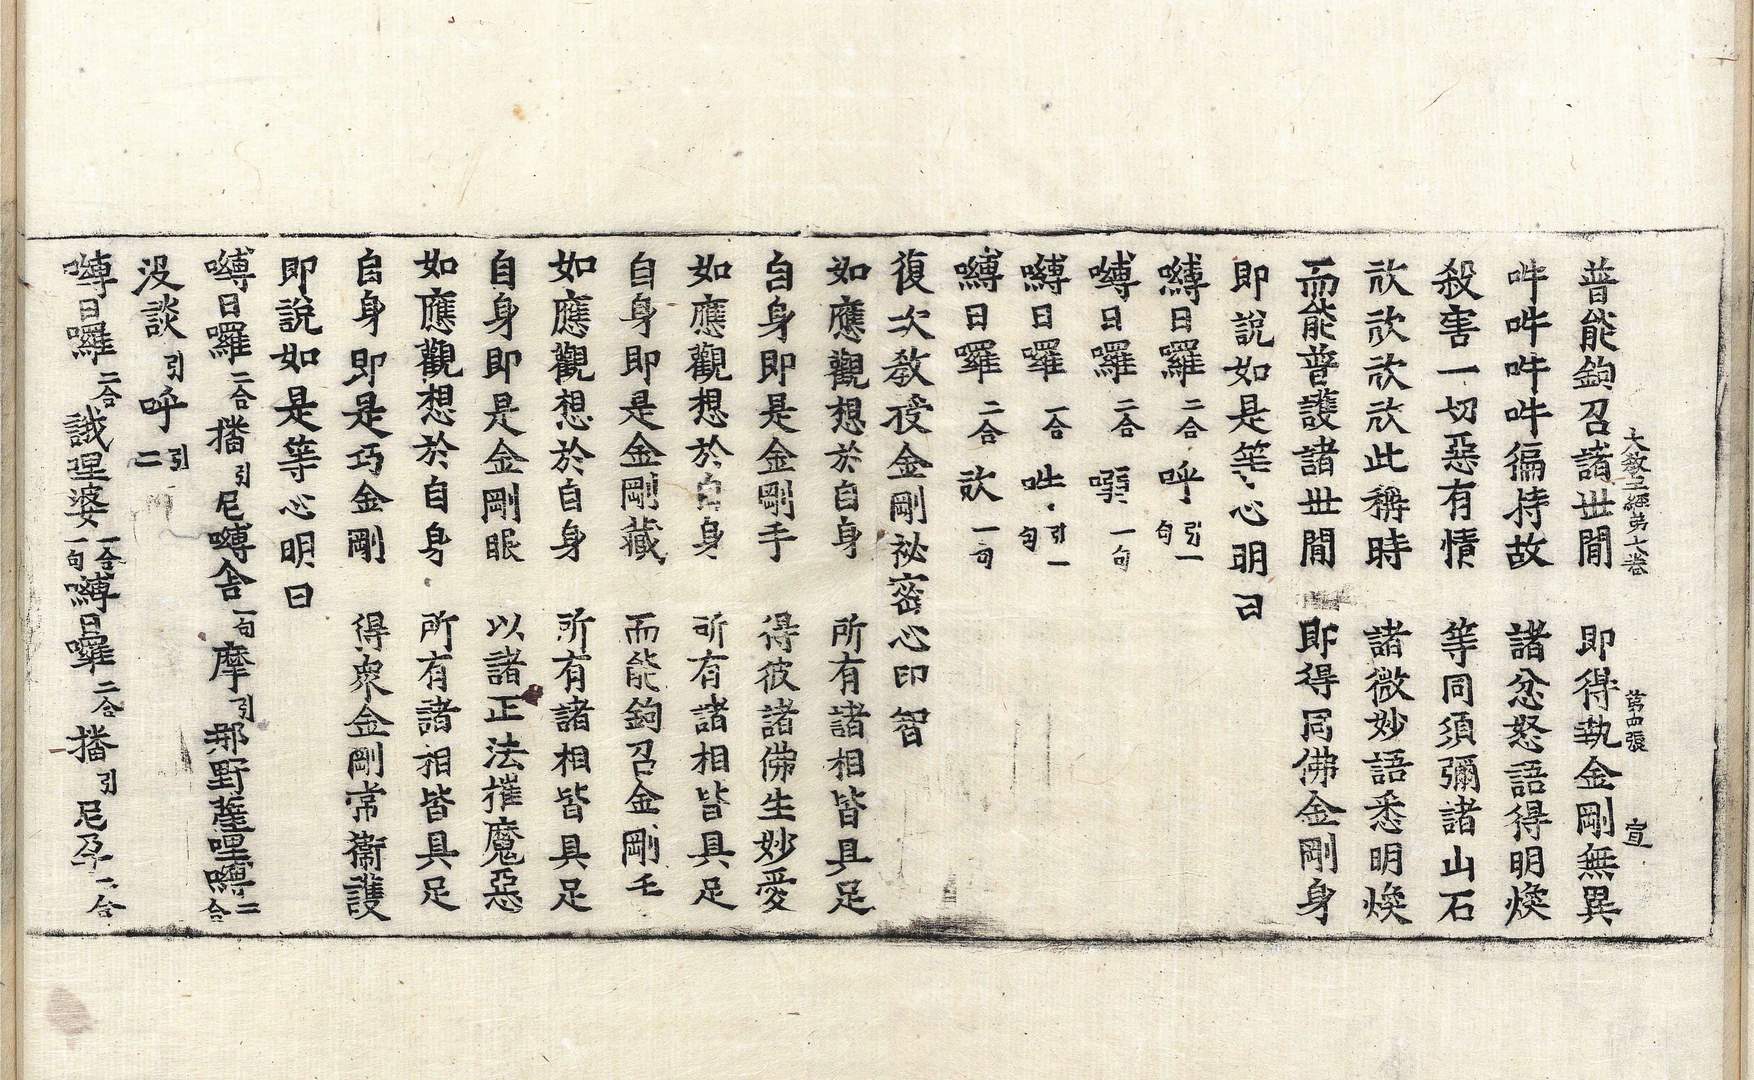 大教王經第七卷 第四張 宣
普能鉤召諸世閒 即得執金剛無異
吽吽吽吽徧持故 諸忿怒語得明煥
殺害一切惡有情 等同須彌諸山石
㰠㰠㰠㰠此稱時 諸微妙語悉明煥
而能普護諸世閒 即得同佛金剛身
即說如是等心明曰
嚩日囉二合呼引一句
嚩日囉二合㗚一句
嚩日囉二合吽引一句
嚩日囉二合㰠一句
復次教授金剛祕密心印智
如應觀想於自身 所有諸相皆具足
自身即是金剛手 得彼諸佛生妙愛
如應觀想於自身 所有諸相皆具足
自身即是金剛藏 而能鉤召金剛王
如應觀想於自身 所有諸相皆具足
自身即是金剛眼 以諸正法摧魔惡
如應觀想於自身 所有諸相皆具足
自身即是巧金剛 得衆金剛常衞護
即說如是等心明曰
嚩日囉二合播引尼嚩舍一句摩引那野薩哩嚩二合
没談引呼引二
嚩日囉二合誐哩婆二合一句嚩日囉二合播引尼孕二合